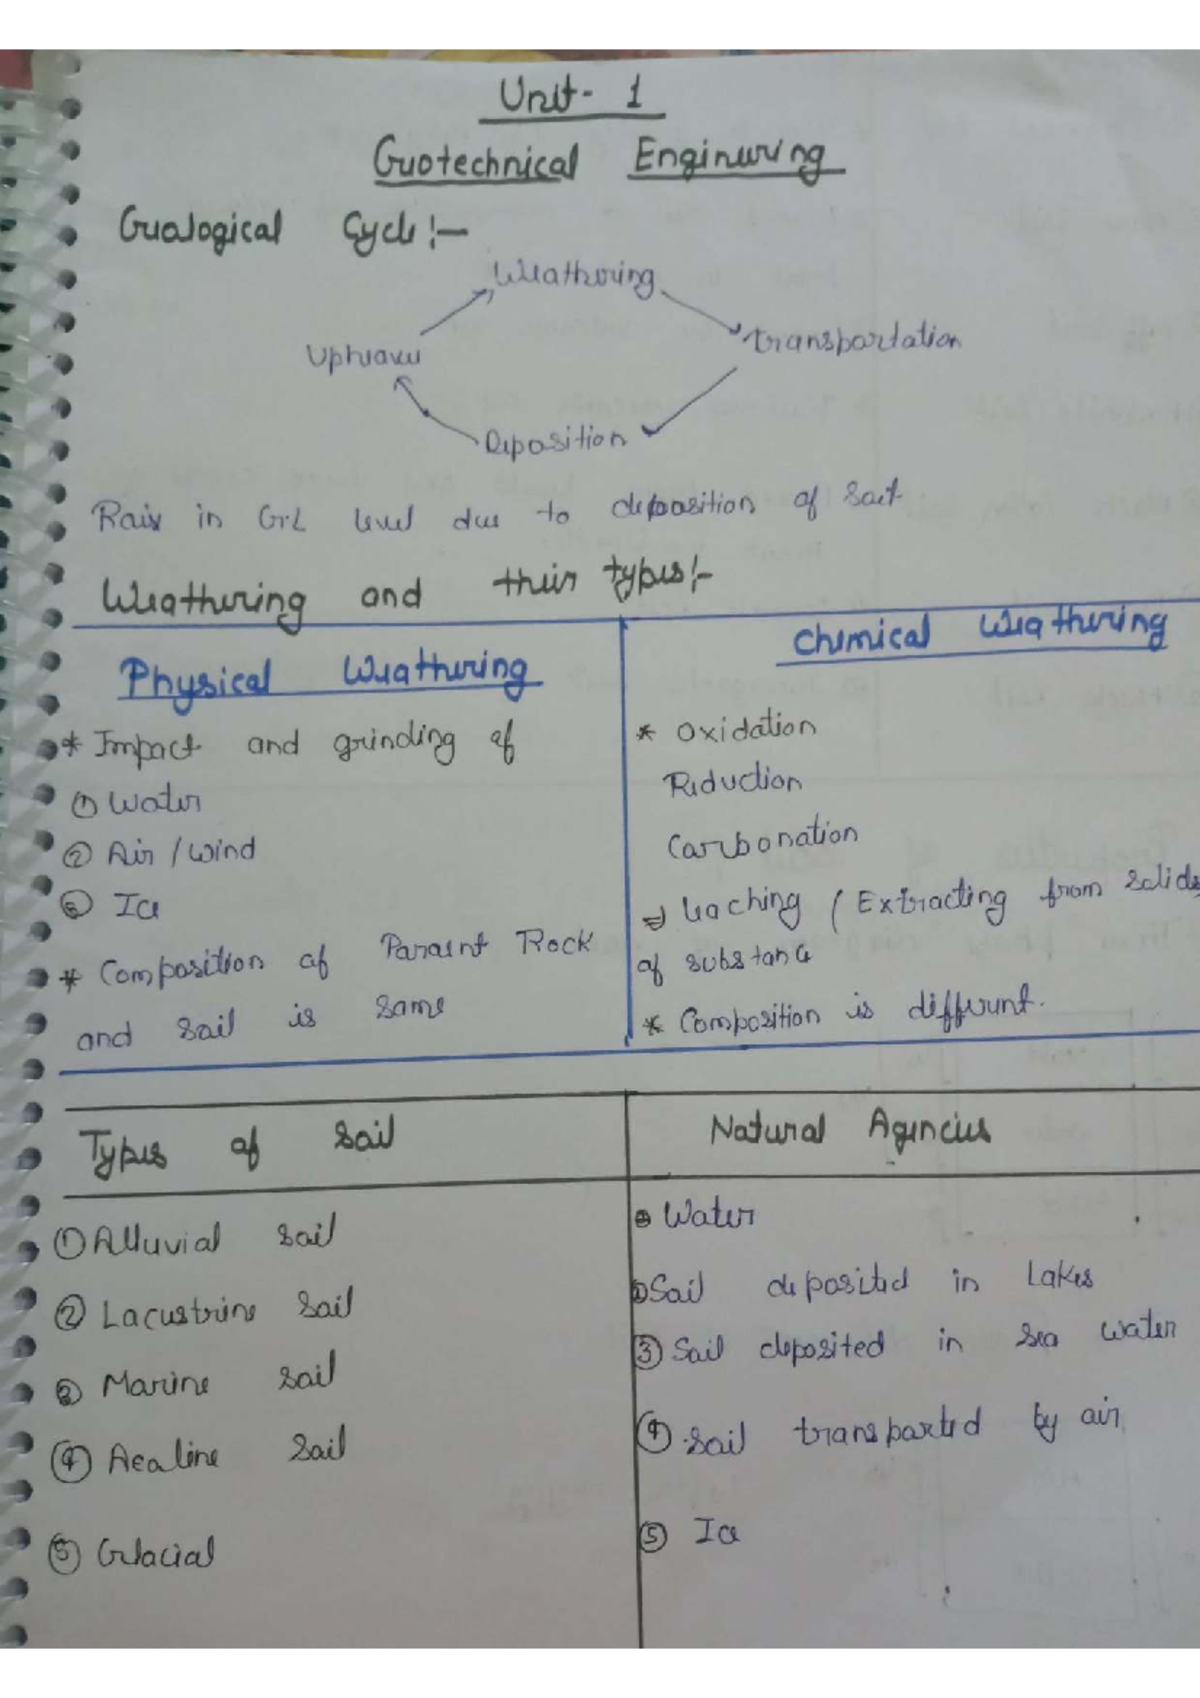 Unit- 1
Geotechnical Engineering
Gealogical Cycle :-
Weathering
Upheaveu
transportation
Deposition
Raise in G.L level due to deposition of Soil
Weathering and their types :-
Physical Weathering
* Impact and grinding of
① Water
② Air / Wind
③ Ice
* Composition of Paraent Rock
and Soil is same
Chemical Weathering
* Oxidation
Reduction
Carbonation
⇒ Leaching ( Extracting from Solids
of substance
* Composition is different.
Types of Soil
Natural Agencies
① Alluvial Soil
① Water
② Lacustrine Soil
② Soil deposited in Lakes
③ Marine Soil
③ Soil deposited in sea water
④ Aealine Soil
④ Soil transported by air
⑤ Glacial
⑤ Ice